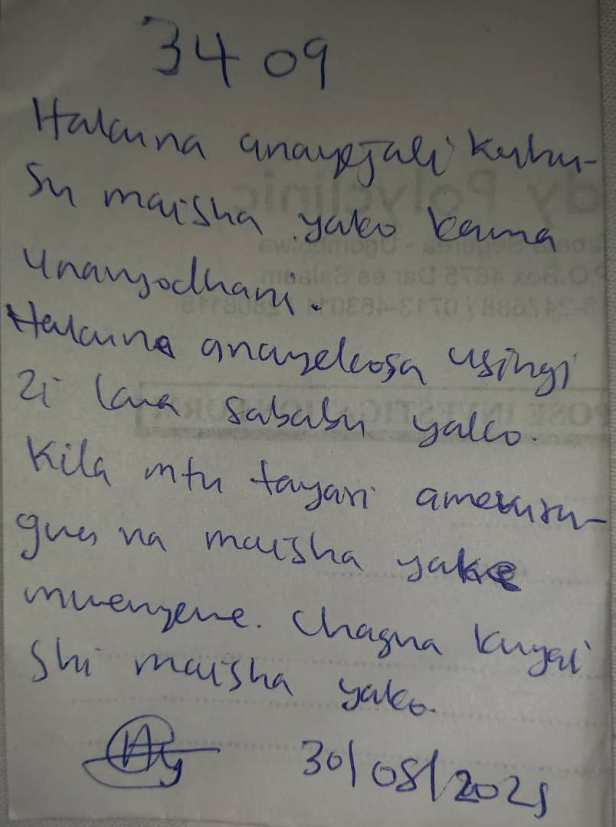 3409
Hakuna anayejali kuhu-
su maisha yako kama
unavyodhani.
Hakuna anayekosa usingi
zi kwa sababu yako.
Kila mtu tayari amevuru-
gwa na maisha yake
mwenyewe. Chagua kuyai
shi maisha yako.
30/08/2025